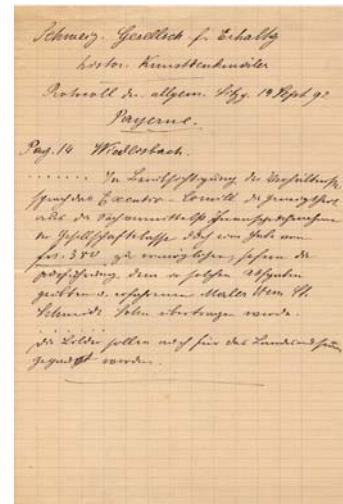 Schweiz. Gesellsch. f. Erhaltg
histor. Kunstdenkmäler
Protocoll der allgem. Sitzg. 14 Sept 92
Payerne.
Pag. 14 Wiedlisbach.
....... In Berücksichtigung der Verhältnisse
sprach das Executiv-Comité die Geneigtheit
aus die
der Gesellschaftskasse
frs. 350 zu ermöglichen, sofern die
Ausführung dem in solchen Aufgaben
geübten u. erfahrenen Maler Herrn
Schmidt Sohn übertragen werde.
.......
Die Bilder sollen auch für das Landesmuseum
werden.